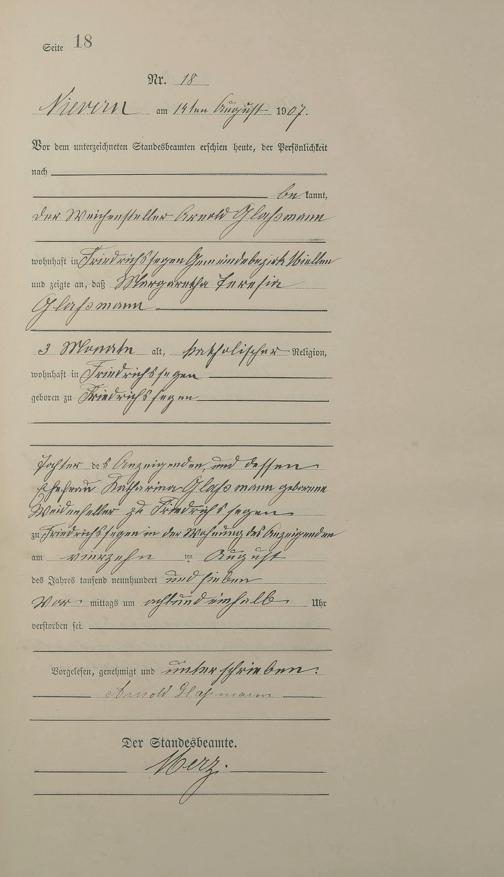 Seite 18
Nr. 18
Nievern am 14ten August 1907.
Vor dem unterzeichneten Standesbeamten erschien heute, der Persönlichkeit
nach
be kannt,
der Weichensteller Arnold Glaßmann
wohnhaft in Friedrichssegen Gemeindebezirk Miellen
und zeigte an, daß Margaretha Teresia
Glaßmann
3 Monate alt, katholischer Religion,
wohnhaft in Friedrichssegen
geboren zu Friedrichssegen
Tochter des Anzeigenden und dessen
Ehefrau Katharina Glaßmann geborene
Weidenfeller zu Friedrichssegen
zu Friedrichssegen in der Wohnung des Anzeigenden
am vierzehn ten August
des Jahres tausend neunhundert und sieben
Vor mittags um achtundeinhalb Uhr
verstorben sei.
Vorgelesen, genehmigt und unterschrieben.
Arnold Glaßmann
Der Standesbeamte.
Merz.